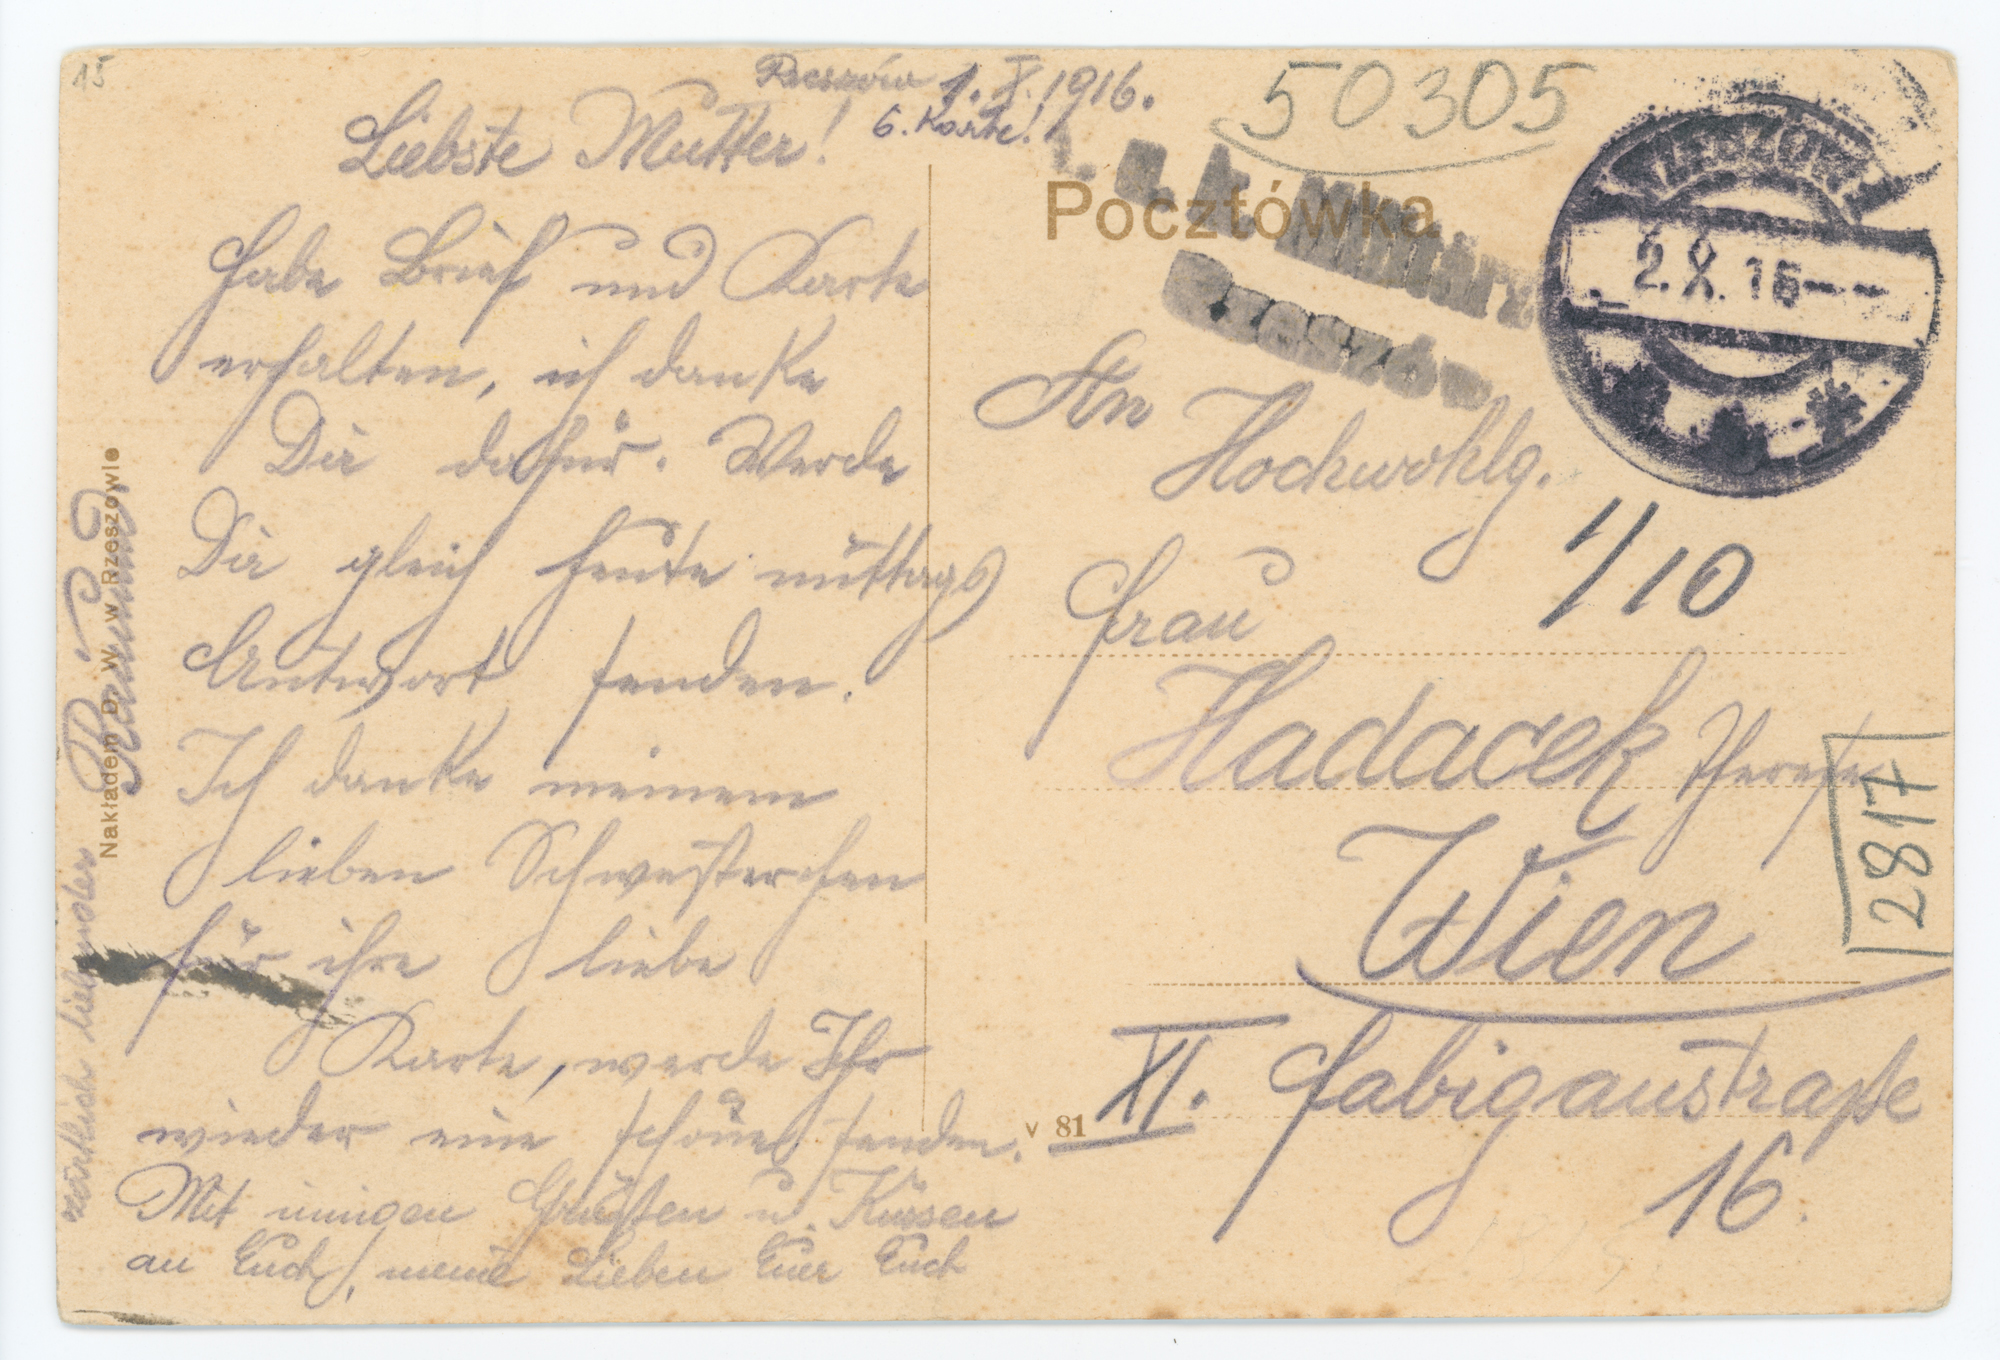 15
Rzeszów 1. X. 1916.
6. Karte!
Liebste Mutter!
Habe Brief und Karte
erhalten, ich danke
Dir dafür. Werde
Dir gleich heute mittags
Antwort senden.
Ich danke meinem
lieben Schwesterchen
für ihre liebe
Karte, werde Ihr
wieder eine schöne senden.
Mit innigen Grüßen u. Küssen
an Euch, meine Lieben Euer Euch
zärtlich liebender
Raimund
Nakładem D. W. w Rzeszowie
50305
Pocztówka
k. u. k. Militär
Rzeszów
RZESZÓW
2. X. 16
An Hochwohlg.
1/10
Frau
Hadacek Therese
2817
Wien
XI. Fabigaustraße
16.
v 81